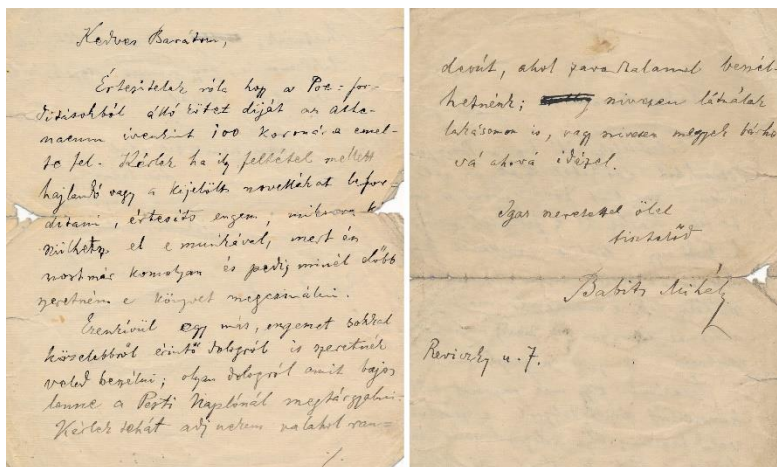 Kedves Barátom,
Értesitelek róla hogy a Poe-for-
ditásokból álló kötet diját az Athe-
naeum ivenkint 100 koronára emel-
te fel. Kérlek ha ily feltétel mellett
hajlandó vagy a kijelölt novellákat lefor-
ditani, értesits engem, mikorra k
szülhetsz el e munkával, mert én
most már komolyan és pedig minél előbb
szeretném e könyvet megcsinálni.
Ezenkivül egy más, engemet sokkal
közelebbről érintő dologról is szeretnék
veled beszélni; olyan dologról amit bajos
lenne a Pesti Naplónál megtárgyalni.
Kérlek tehát adj nekem valahol ran-
./.
devút, ahol zavartalanul beszél-
hetnénk; szivesen látnálak
lakásomon is, vagy szivesen megyek bárho
vá ahová idézel.
Igaz szeretettel ölel
tisztelőd
Babits Mihály
Reviczky u. 7.